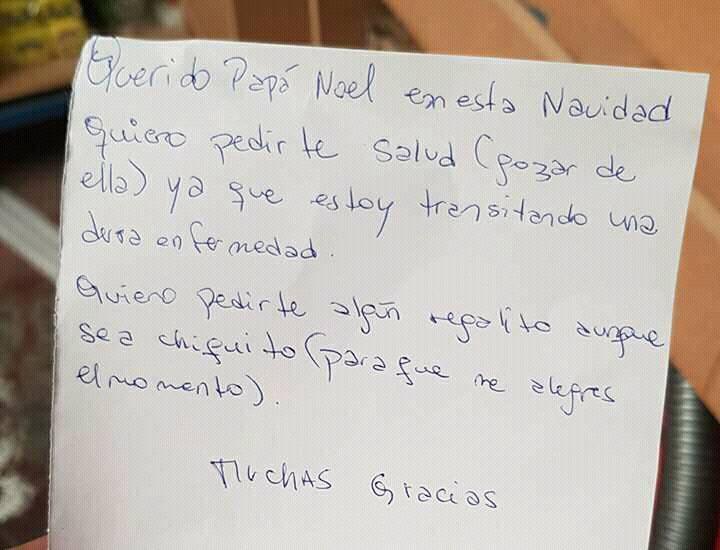 Querido Papá Noel en esta Navidad
quiero pedirte salud (gozar de
ella) ya que estoy transitando una
dura enfermedad.
Quiero pedirte algún regalito aunque
sea chiquito (para que me alegres
el momento).
Muchas Gracias